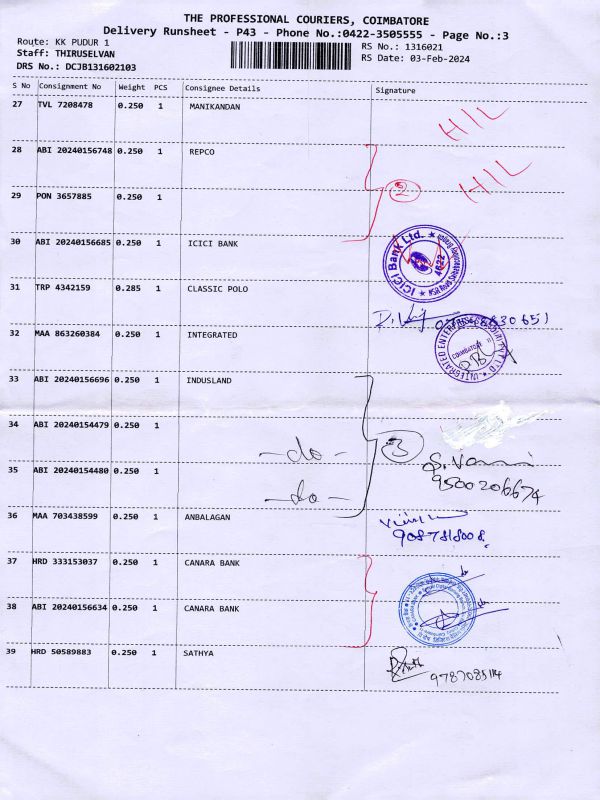 THE PROFESSIONAL COURIERS, COIMBATORE
Delivery Runsheet - P43 - Phone No.:0422-3505555 - Page No.:3
Route: KK PUDUR 1
RS No.: 1316021
Staff: THIRUSELVAN
RS Date: 03-Feb-2024
DRS No.: DCJB131602103
S No Consignment No Weight PCS Consignee Details Signature
27 TVL 7208478 0.250 1 MANIKANDAN
HIL
28 ABI 20240156748 0.250 1 REPCO
2 HIL
29 PON 3657885 0.250 1
30 ABI 20240156685 0.250 1 ICICI BANK
ICICI Bank Ltd.
4622
31 TRP 4342159 0.285 1 CLASSIC POLO
32 MAA 863260384 0.250 1 INTEGRATED
COIMBATORE
33 ABI 20240156696 0.250 1 INDUSLAND
34 ABI 20240154479 0.250 1
-do- 3
35 ABI 20240154480 0.250 1
9500206674
-do-
36 MAA 703438599 0.250 1 ANBALAGAN
9087818008
37 HRD 333153037 0.250 1 CANARA BANK
38 ABI 20240156634 0.250 1 CANARA BANK
39 HRD 50589883 0.250 1 SATHYA
9787085114